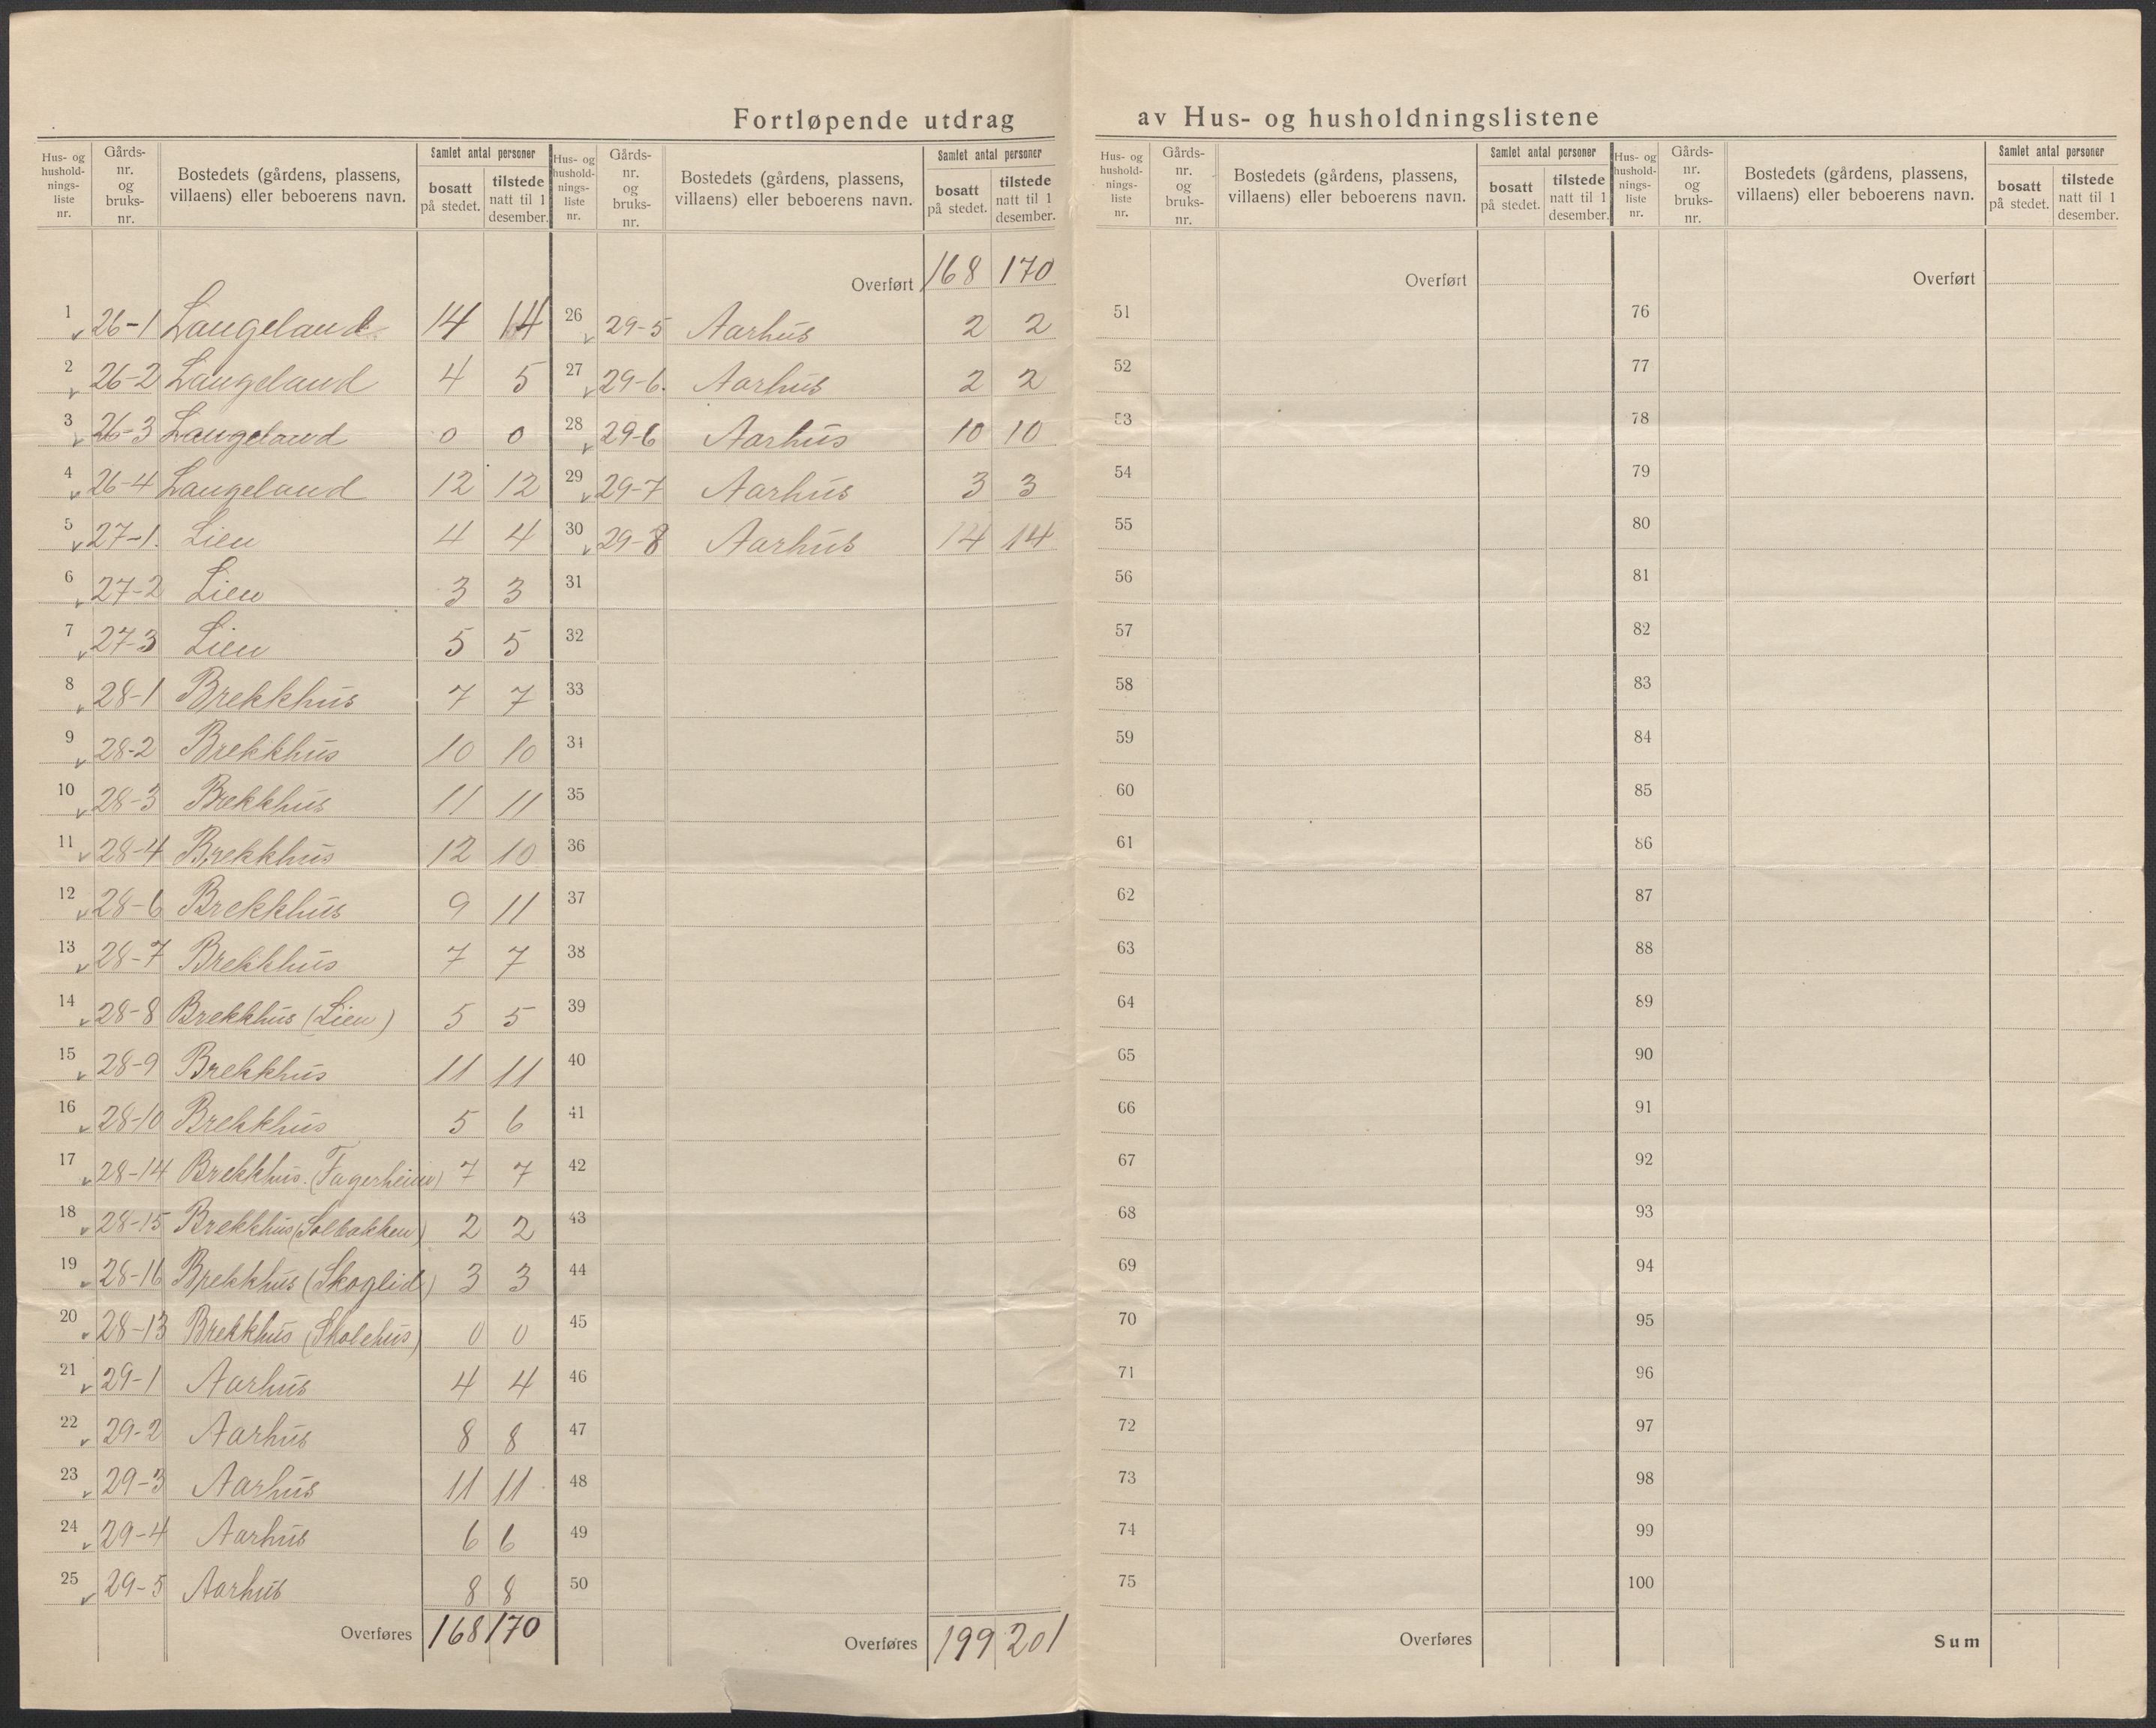 Fortløpende utdrag av Hus- og husholdningslistene
Hus- og hushold-nings-liste nr. Gårds-nr. og bruks-nr. Bostedets (gårdens, plassens, villaens) eller beboerens navn. Samlet antal personer bosatt på stedet. tilstede natt til 1 desember.
1 26-1 Langeland 14 14
2 26-2 Langeland 4 5
3 26-3 Langeland 0 0
4 26-4 Langeland 12 12
5 27-1. Lien 4 4
6 27-2 Lien 3 3
7 27-3 Lien 5 5
8 28-1 Brekkhus 7 7
9 28-2 Brekkhus 10 10
10 28-3 Brekkhus 11 11
11 28-4 Brekkhus 12 10
12 28-6 Brekkhus 9 11
13 28-7 Brekkhus 7 7
14 28-8 Brekkhus (Lien) 5 5
15 28-9 Brekkhus 11 11
16 28-10 Brekkhus 5 6
17 28-14 Brekkhus. (Fagerheim) 7 7
18 28-15 Brekkhus (Solbakken) 2 2
19 28-16 Brekkhus (Skoglid) 3 3
20 28-13 Brekkhus (Skolehus) 0 0
21 29-1 Aarhus 4 4
22 29-2 Aarhus 8 8
23 29-3 Aarhus 11 11
24 29-4 Aarhus 6 6
25 29-5 Aarhus 8 8
Overføres 168 170
Hus- og hushold-nings-liste nr. Gårds-nr. og bruks-nr. Bostedets (gårdens, plassens, villaens) eller beboerens navn. Samlet antal personer bosatt på stedet. tilstede natt til 1 desember.
Overført 168 170
26 29-5 Aarhus 2 2
27 29-6. Aarhus 2 2
28 29-6 Aarhus 10 10
29 29-7 Aarhus 3 3
30 29-8 Aarhus 14 14
31
32
33
34
35
36
37
38
39
40
41
42
43
44
45
46
47
48
49
50
Overføres 199 201
Hus- og hushold-nings-liste nr. Gårds-nr. og bruks-nr. Bostedets (gårdens, plassens, villaens) eller beboerens navn. Samlet antal personer bosatt på stedet. tilstede natt til 1 desember.
Overført
51
52
53
54
55
56
57
58
59
60
61
62
63
64
65
66
67
68
69
70
71
72
73
74
75
Overføres
Hus- og hushold-nings-liste nr. Gårds-nr. og bruks-nr. Bostedets (gårdens, plassens, villaens) eller beboerens navn. Samlet antal personer bosatt på stedet. tilstede natt til 1 desember.
Overført
76
77
78
79
80
81
82
83
84
85
86
87
88
89
90
91
92
93
94
95
96
97
98
99
100
Sum